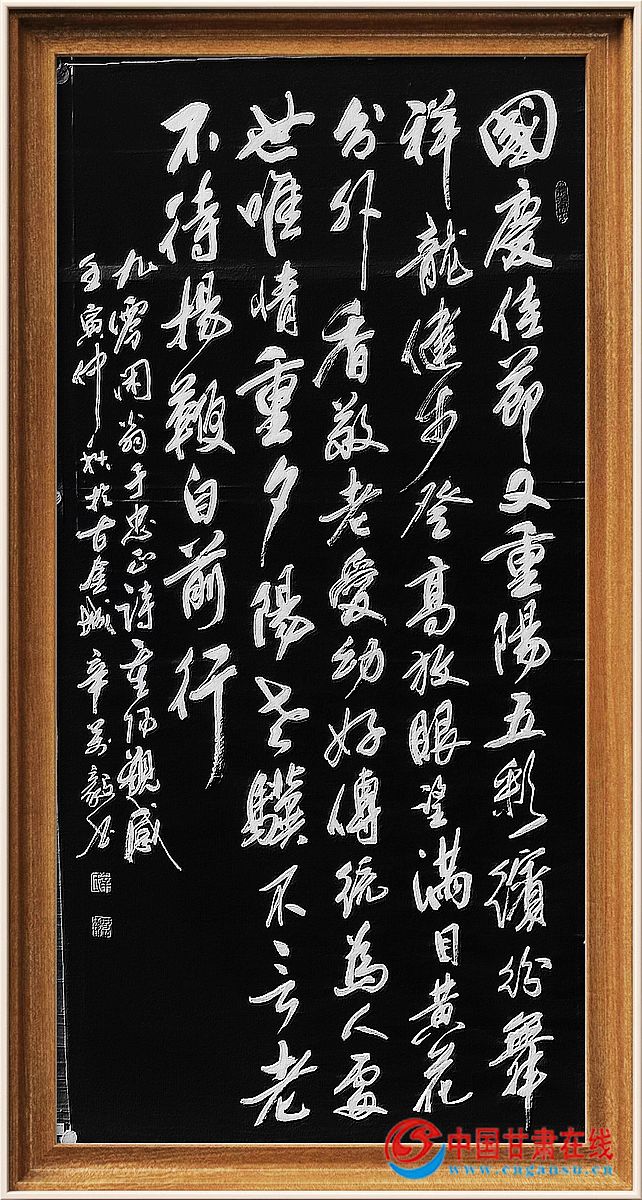 國慶佳節又重陽五彩繽紛舞
祥龍健步登高放眼望滿目黄花
分外香敬老愛幼好傳統為人處
世唯情重夕陽老驥不言老
不待揚鞭自前行
九霄閑翁于忠正詩重陽觀感
壬寅仲秋於古金城辛毅书
中国甘肃在线
www.cngansu.cn